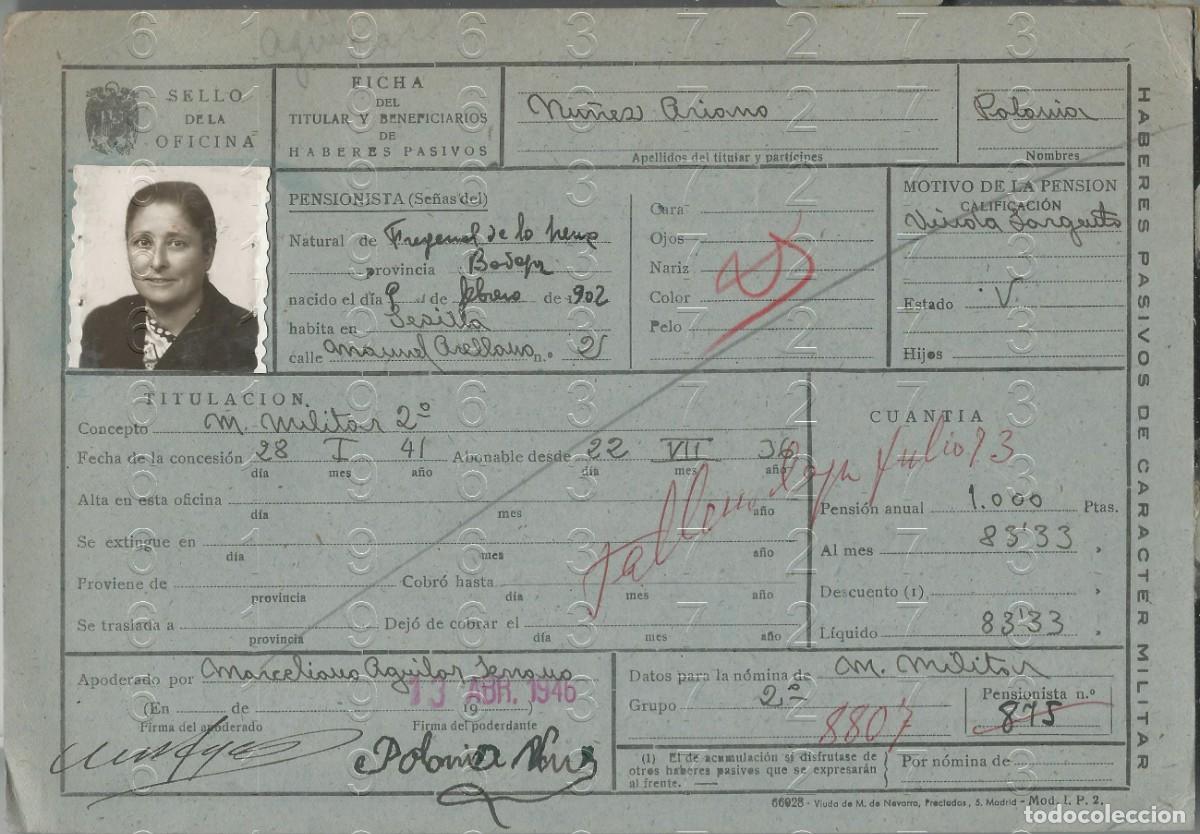 SELLO
DE LA
OFICINA
FICHA
DEL
TITULAR Y BENEFICIARIOS
DE
HABERES PASIVOS
Nuñez Ariano
Apellidos del titular y partícipes
Polonia
Nombres
PENSIONISTA (Señas del)
Natural de Fregenal de la
provincia Badajoz
nacido el día 9 de febrero de 1902
habita en Sevilla
calle Manuel Arellano n.º 2
Cara
Ojos
Nariz
Color
Pelo
MOTIVO DE LA PENSION
CALIFICACIÓN
Viuda Sargento
Estado V
Hijos
TITULACION
Concepto M. Militar 2º
Fecha de la concesión 28 I 41 Abonable desde 22 VII 36
día mes año día mes año
Alta en esta oficina
día mes año
Se extingue en
día mes año
Proviene de Cobró hasta
provincia día mes año
Se traslada a Dejó de cobrar el
provincia día mes año
Julio 73
CUANTIA
Pensión anual 1.000 Ptas.
Al mes 83'33 »
Descuento (1) »
Líquido 83'33 »
Apoderado por Marceliano Aguilar Serrano
13 ABR. 1946
(En de 19 )
Firma del apoderado Firma del poderdante
Polonia Nuñez
Datos para la nómina de M. Militar
Grupo 2º
8807
Pensionista n.º
875
(1) El de acumulación si disfrutase de
otros haberes pasivos que se expresarán
al frente.
Por nómina de
66928 - Viuda de M. de Navarro, Preciados, 5. Madrid - Mod. I. P. 2.
HABERES PASIVOS DE CARACTER MILITAR
6 1 9 6 3 7 2 7 3
todocoleccion